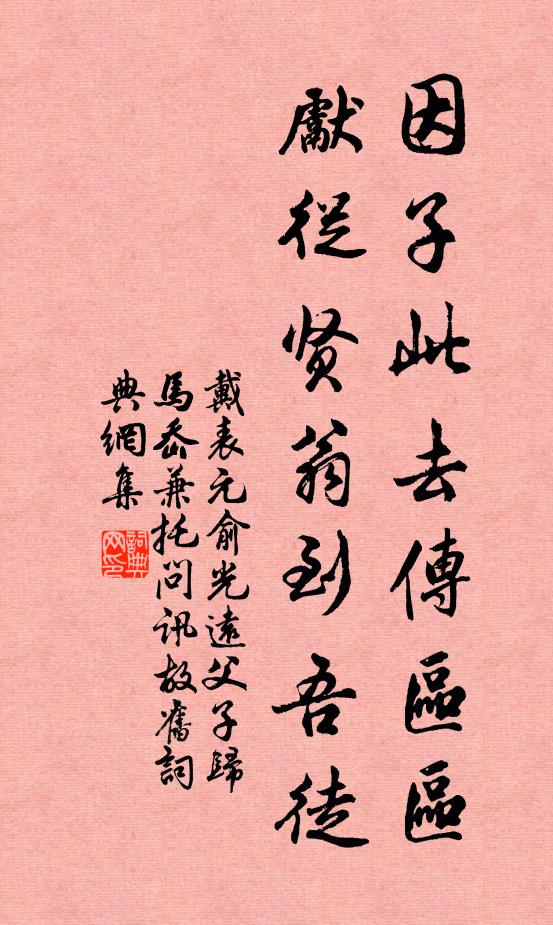 因子此去傳區區
獻從贤翁到吾徒
戴表元俞光遠父子歸
馬嶴兼托問訊故舊詞
典網集
詞典
网印